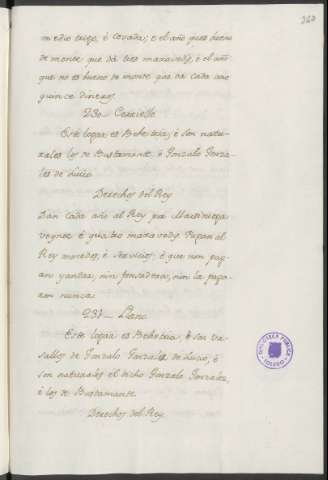 medio trigo, é cevada; é el año ques bueno
de monte que dá tres maravedis, é el año
que no es bueno de monte que da cada año
quince dineros.
230 - Ceravello
Este logar es Behetria, é son natu-
rales los de Bustamante é Gonzalo Gonza-
les de Lucio.
Derechos del Rey
Dan cada año al Rey por Martiniega
veynte é quatro maravedis. Pagan al
Rey monedas, é servicios; é que non pag-
an yantar, nin fonsadera, nin la paga-
ron nunca.
231 - Llano
Este logar es Behetria, é son va-
sallos de Gonzalo Gonzalez de Lucio, é
son naturales el dicho Gonzalo Gonzalez,
é los de Bustamante.
Derechos del Rey
BIBLIOTECA PUBLICA
TOLEDO